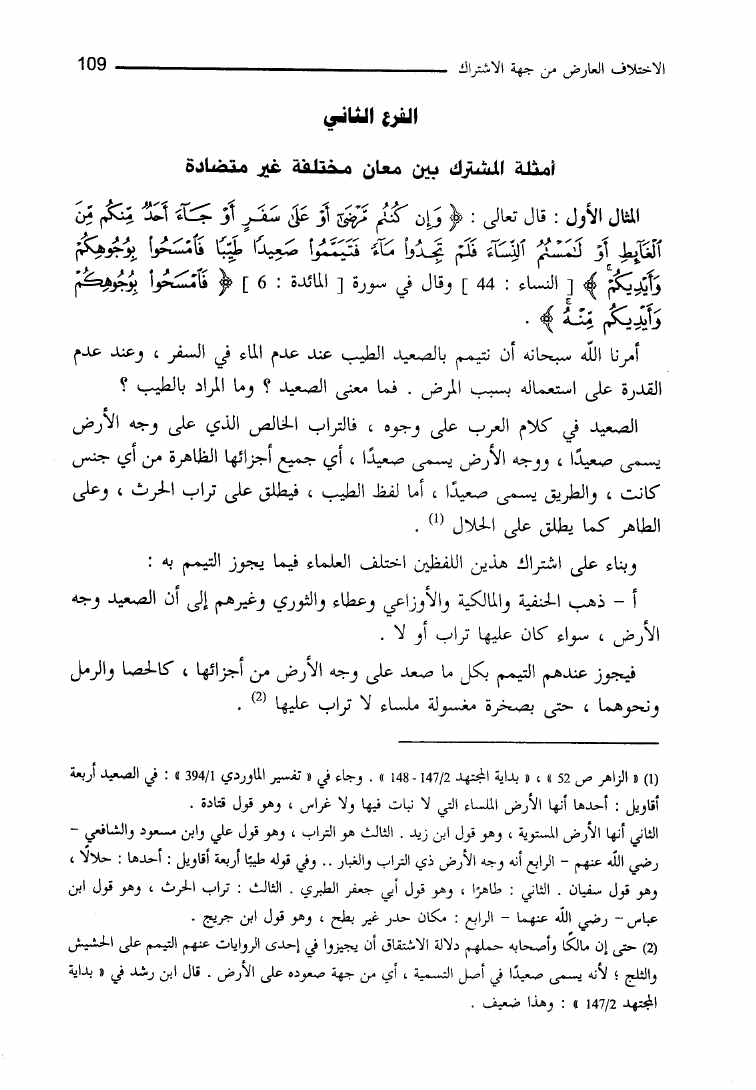 الاختلاف العارض من جهة الاشتراك 109
الفرع الثاني
أمثلة المشترك بين معان مختلفة غير متضادة
المثال الأول : قال تعالى : ﴿ وَإِن كُنتُم مَّرْضَىٰٓ أَوْ عَلَىٰ سَفَرٍ أَوْ جَآءَ أَحَدٌ مِّنكُم مِّنَ
ٱلْغَآئِطِ أَوْ لَٰمَسْتُمُ ٱلنِّسَآءَ فَلَمْ تَجِدُوا۟ مَآءً فَتَيَمَّمُوا۟ صَعِيدًا طَيِّبًا فَٱمْسَحُوا۟ بِوُجُوهِكُمْ
وَأَيْدِيكُمْ ﴾ [ النساء : 44 ] وقال في سورة [ المائدة : 6 ] ﴿ فَٱمْسَحُوا۟ بِوُجُوهِكُمْ
وَأَيْدِيكُم مِّنْهُ ﴾ .
أمرنا اللّه سبحانه أن نتيمم بالصعيد الطيب عند عدم الماء في السفر ، وعند عدم
القدرة على استعماله بسبب المرض . فما معنى الصعيد ؟ وما المراد بالطيب ؟
الصعيد في كلام العرب على وجوه ، فالتراب الخالص الذي على وجه الأرض
يسمى صعيدًا ، ووجه الأرض يسمى صعيدًا ، أي جميع أجزائها الظاهرة من أي جنس
كانت ، والطريق يسمى صعيدًا ، أما لفظ الطيب ، فيطلق على تراب الحرث ، وعلى
الطاهر كما يطلق على الحلال (1) .
وبناء على اشتراك هذين اللفظين اختلف العلماء فيما يجوز التيمم به :
أ – ذهب الحنفية والمالكية والأوزاعي وعطاء والثوري وغيرهم إلى أن الصعيد وجه
الأرض ، سواء كان عليها تراب أو لا .
فيجوز عندهم التيمم بكل ما صعد على وجه الأرض من أجزائها ، كالحصا والرمل
ونحوهما ، حتى بصخرة مغسولة ملساء لا تراب عليها (2) .
(1) « الزاهر ص 52 » ، « بداية المجتهد 147/2 - 148 » . وجاء في « تفسير الماوردي 394/1 » : في الصعيد أربعة
أقاويل : أحدها أنها الأرض الملساء التي لا نبات فيها ولا غراس ، وهو قول قتادة .
الثاني أنها الأرض المستوية ، وهو قول ابن زيد . الثالث هو التراب ، وهو قول علي وابن مسعود والشافعي –
رضي اللّه عنهم – الرابع أنه وجه الأرض ذي التراب والغبار .. وفي قوله طيبًا أربعة أقاويل : أحدها : حلالًا ،
وهو قول سفيان . الثاني : طاهرًا ، وهو قول أبي جعفر الطبري . الثالث : تراب الحرث ، وهو قول ابن
عباس – رضي اللّه عنهما – الرابع : مكان حدر غير بطح ، وهو قول ابن جريج .
(2) حتى إن مالكًا وأصحابه حملهم دلالة الاشتقاق أن يجيزوا في إحدى الروايات عنهم التيمم على الحشيش
والثلج ؛ لأنه يسمى صعيدًا في أصل التسمية ، أي من جهة صعوده على الأرض . قال ابن رشد في « بداية
المجتهد 147/2 » : وهذا ضعيف .